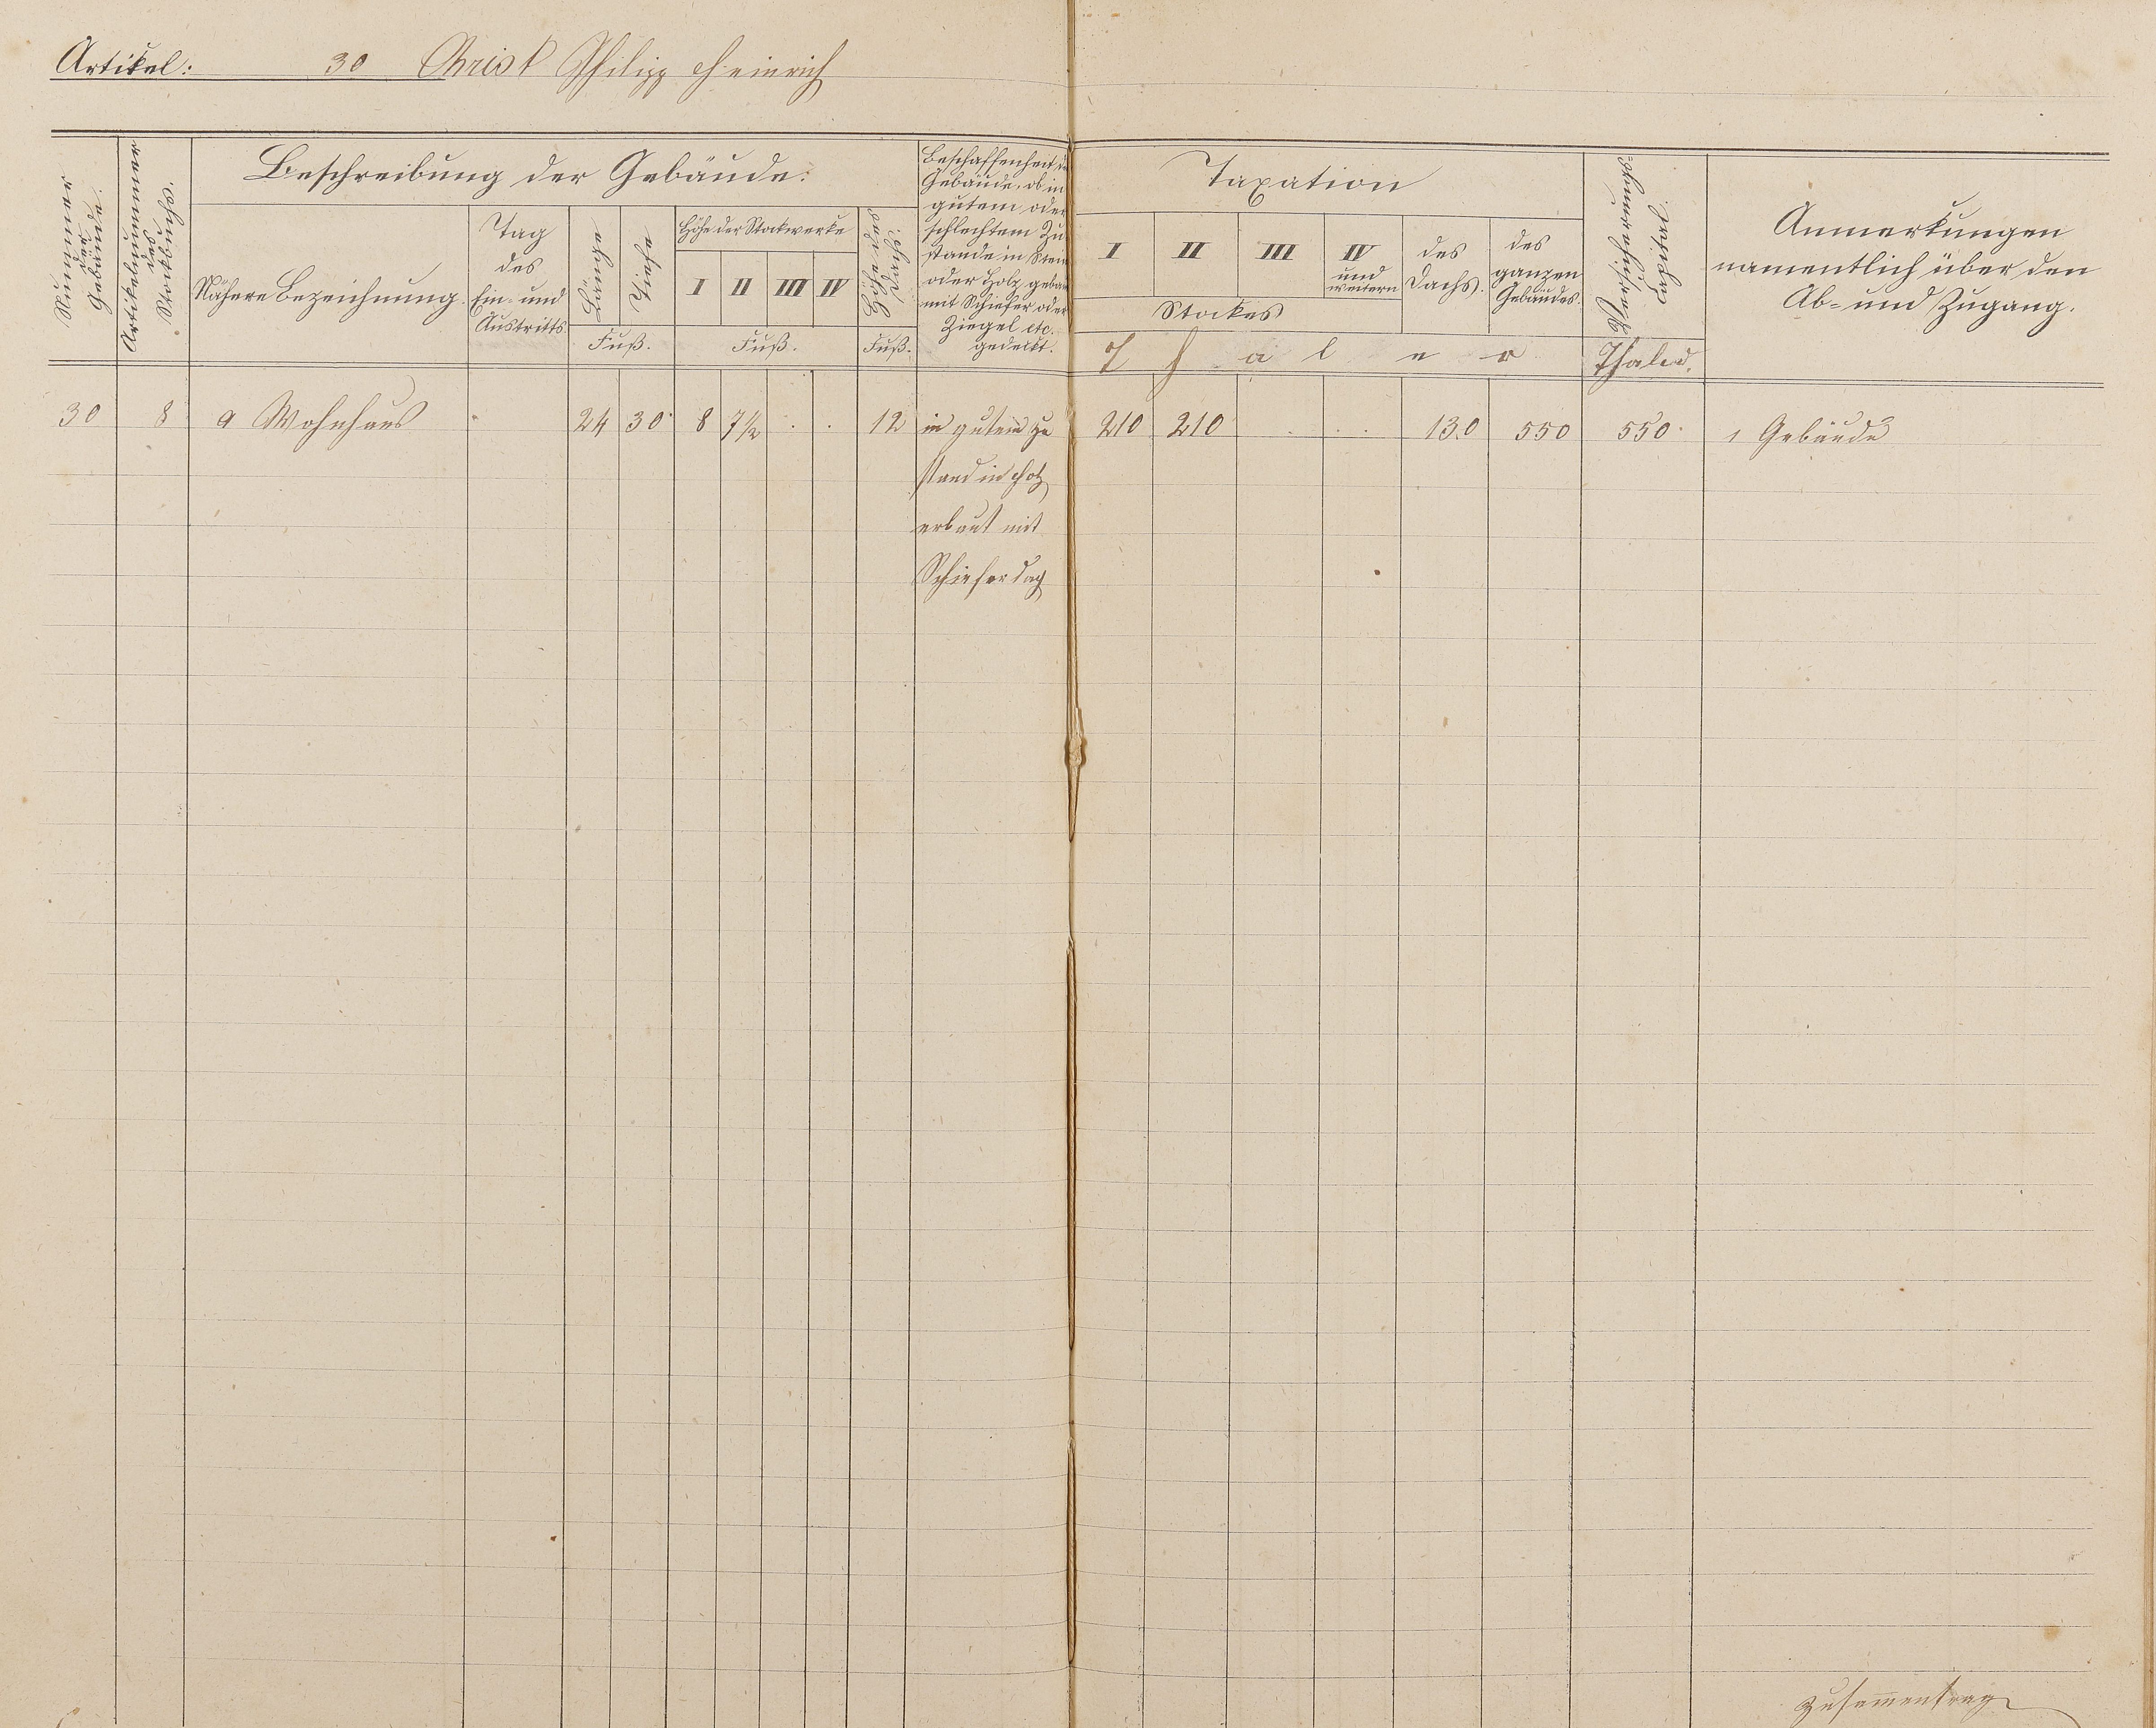 Artikel: 30 Christ Philipp Heinrich
Nummer der Gebäude.
Artikelnummer des Stockbuchs.
Beschreibung der Gebäude:
Nähere Bezeichnung.
Tag
des
Ein- und
Austritts
Länge
Tiefe
Fuß.
Höhe der Stockwerke
I II III IV
Fuß.
Höhe des Dachs:
Fuß.
Beschaffenheit der
Gebäude, ob in
gutem oder
schlechtem Zu
stande in Stein
oder Holz gebau
mit Schiefer oder
Ziegel etc.
gedeckt.
Taxation
I II III IV
und
weitern
Stockes
des
Dachs.
des
ganzen
Gebäudes.
Thaler
Versicherungs
Capital.
Thaler.
Anmerkungen
namentlich über den
Ab- und Zugang.
30 8 a Wohnhaus 24 30 8 7½ . . 12 in gutem Zu 210 210 . . . 130 550 550 1 Gebäude
stand in Holz
erbaut mit
Schieferdach
Zusammentrag